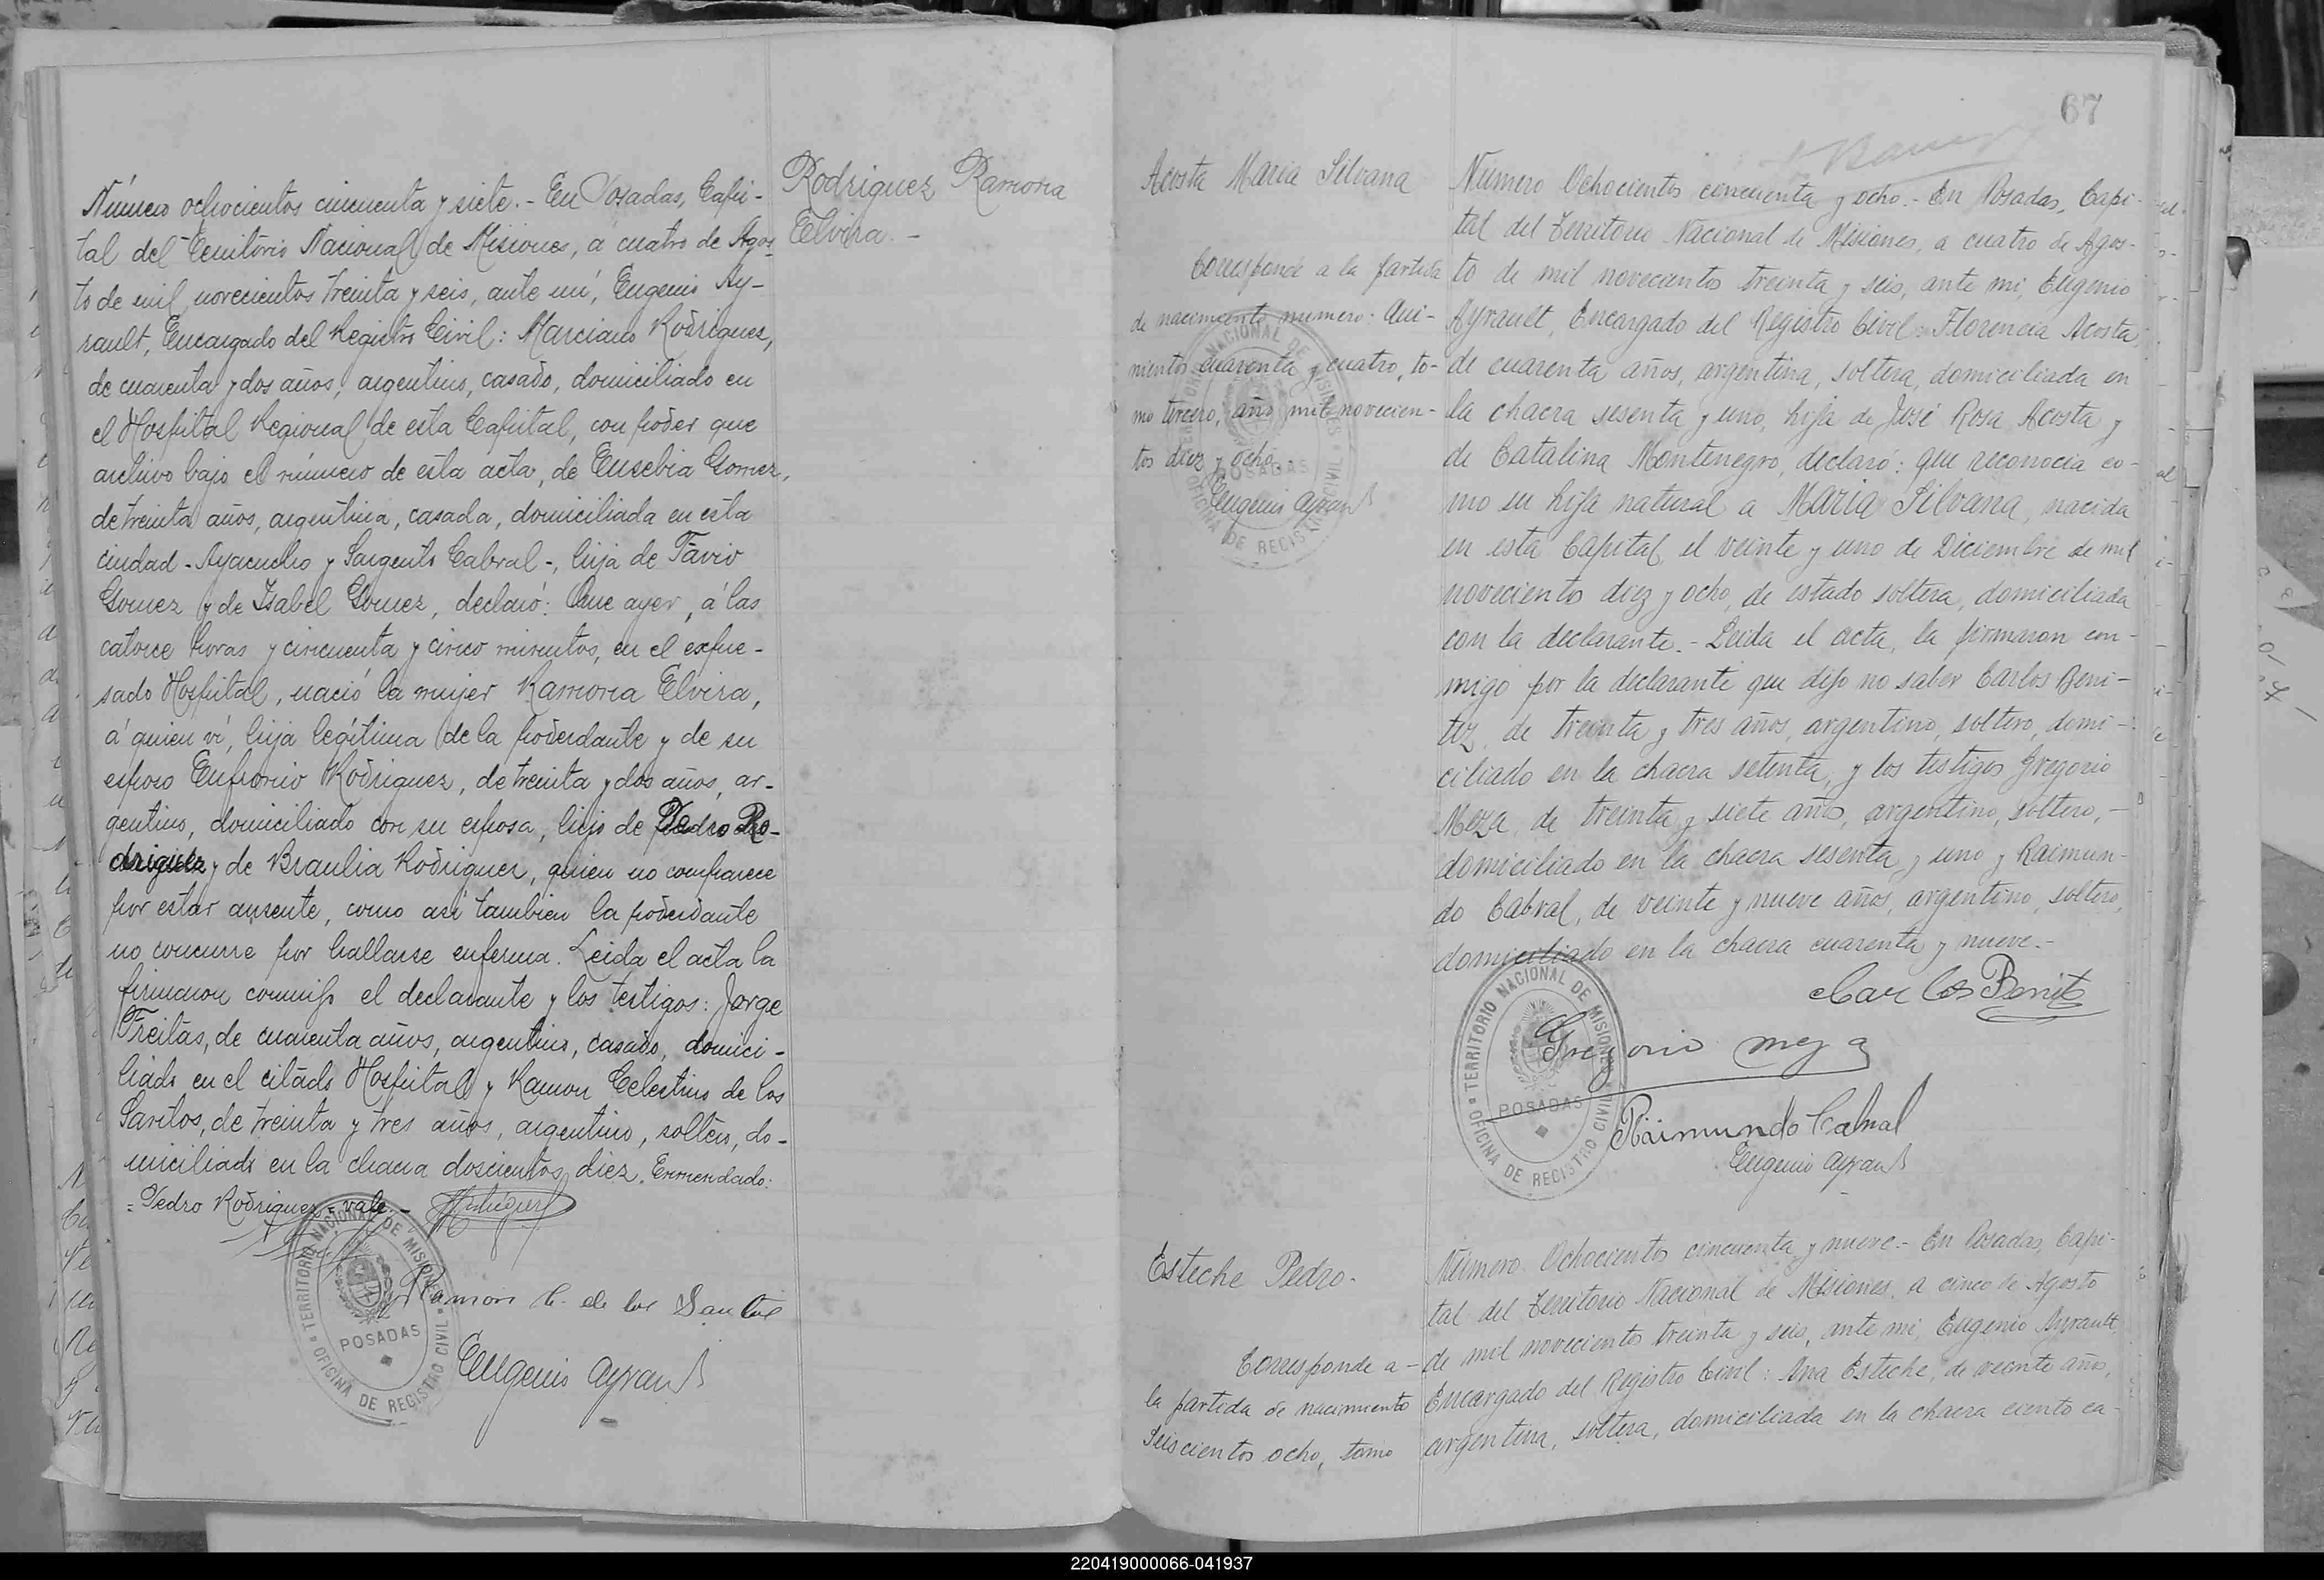 Número ochocientos cincuenta y siete.- En Posadas, Capi-
tal del Territorio Nacional de Misiones, á cuatro de Agos-
to de mil novecientos treinta y seis, ante mí, Eugenio Ay-
rault, Encargado del Registro Civil: Marciano Rodriguez,
de cuarenta y dos años, argentino, casado, domiciliado en
el Hospital Regional de esta Capital, con poder que
archivo bajo el número de esta acta, de Eusebia Gomez,
de treinta años, argentina, casada, domiciliada en esta
ciudad - Ayacucho y Sargento Cabral -, hija de Favio
Gomez y de Isabel Gomez, declaró: Que ayer, á las
catorce horas y cincuenta y cinco minutos, en el expre-
sado Hospital, nació la mujer Ramona Elvira,
á quien ví, hija legítima de la poderdante y de su
esposo Eufronio Rodriguez, de treinta y dos años, ar-
gentino, domiciliado con su esposa, hijo de Pedro Ro-
driguez y de Braulia Rodriguez, quien no comparece
por estar ausente, como así tambien la poderdante
no concurre por hallarse enferma. Leida el acta la
firmaron conmigo el declarante y los testigos: Jorge
Freitas, de cuarenta años, argentino, casado, domici-
liado en el citado Hospital y Ramon Celestino de los
Santos, de treinta y tres años, argentino, soltero, do-
miciliado en la chacra doscientos diez. Enmendado:
=Pedro Rodriguez= vale.-
Ramon C. de los Santos
Eugenio Ayrault
TERRITORIO NACIONAL DE MISIONES
POSADAS
OFICINA DE REGISTRO CIVIL
Rodriguez Ramona
Elvira.-
67
Acosta Maria Silvana
Corresponde a la partida
de nacimiento numero: Qui-
nientos cuarenta y cuatro, to-
mo tercero, año mil novecien-
tos diez y ocho.-
Eugenio Ayrault
TERRITORIO NACIONAL DE MISIONES
POSADAS
OFICINA DE REGISTRO CIVIL
Número Ochocientos cincuenta y ocho.- En Posadas, Capi-
tal del Territorio Nacional de Misiones, a cuatro de Agos-
to de mil novecientos treinta y seis, ante mi, Eugenio
Ayrault, Encargado del Registro Civil: Florencia Acosta,
de cuarenta años, argentina, soltera, domiciliada en
la chacra sesenta y uno, hija de José Rosa Acosta y
de Catalina Montenegro, declaró: que reconocia co-
mo su hija natural a Maria Silvana, nacida
en esta Capital, el veinte y uno de Diciembre de mil
novecientos diez y ocho, de estado soltera, domiciliada
con la declarante.- Leida el acta, la firmaron con-
migo por la declarante que dijo no saber Carlos Beni-
tez, de treinta y tres años, argentino, soltero, domi-
ciliado en la chacra setenta, y los testigos Gregorio
Meza, de treinta y siete años, argentino, soltero,-
domiciliado en la chacra sesenta y uno y Raimun-
do Cabral, de veinte y nueve años, argentino, soltero,
domiciliado en la chacra cuarenta y nueve.-
Carlos Benitez
Gregorio Meza
Raimundo Cabral
Eugenio Ayrault
TERRITORIO NACIONAL DE MISIONES
POSADAS
OFICINA DE REGISTRO CIVIL
Esteche Pedro.
Corresponde a-
la partida de nacimiento
Seiscientos ocho, tomo
Número Ochocientos cincuenta y nueve.- En Posadas, Capi-
tal del Territorio Nacional de Misiones, a cinco de Agosto
de mil novecientos treinta y seis, ante mi, Eugenio Ayrault,
Encargado del Registro Civil: Ana Esteche, de veinte años,
argentina, soltera, domiciliada en la chacra ciento ca-
220419000066-041937